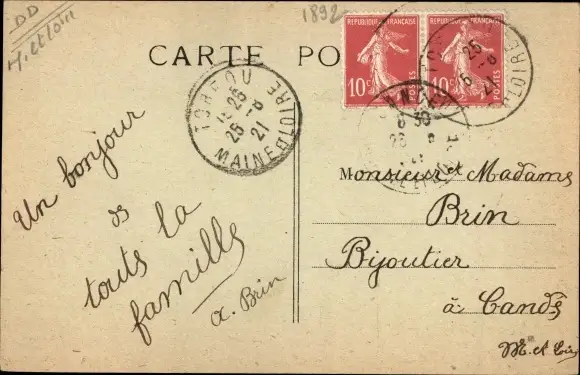 DD
M. et Loir
1892
CARTE PO
REPUBLIQUE FRANÇAISE
10c
POSTES
REPUBLIQUE FRANÇAISE
10c
POSTES
TORFOU
25
25 -8
21
MAINE
LOIRE
25
-8
21
LOIRE
CANDÉ
8 30
26
Un bonjour
de
toute la
famille
A. Brin
Monsieur et Madame
Brin
Bijoutier
à Candé
M. et Loire